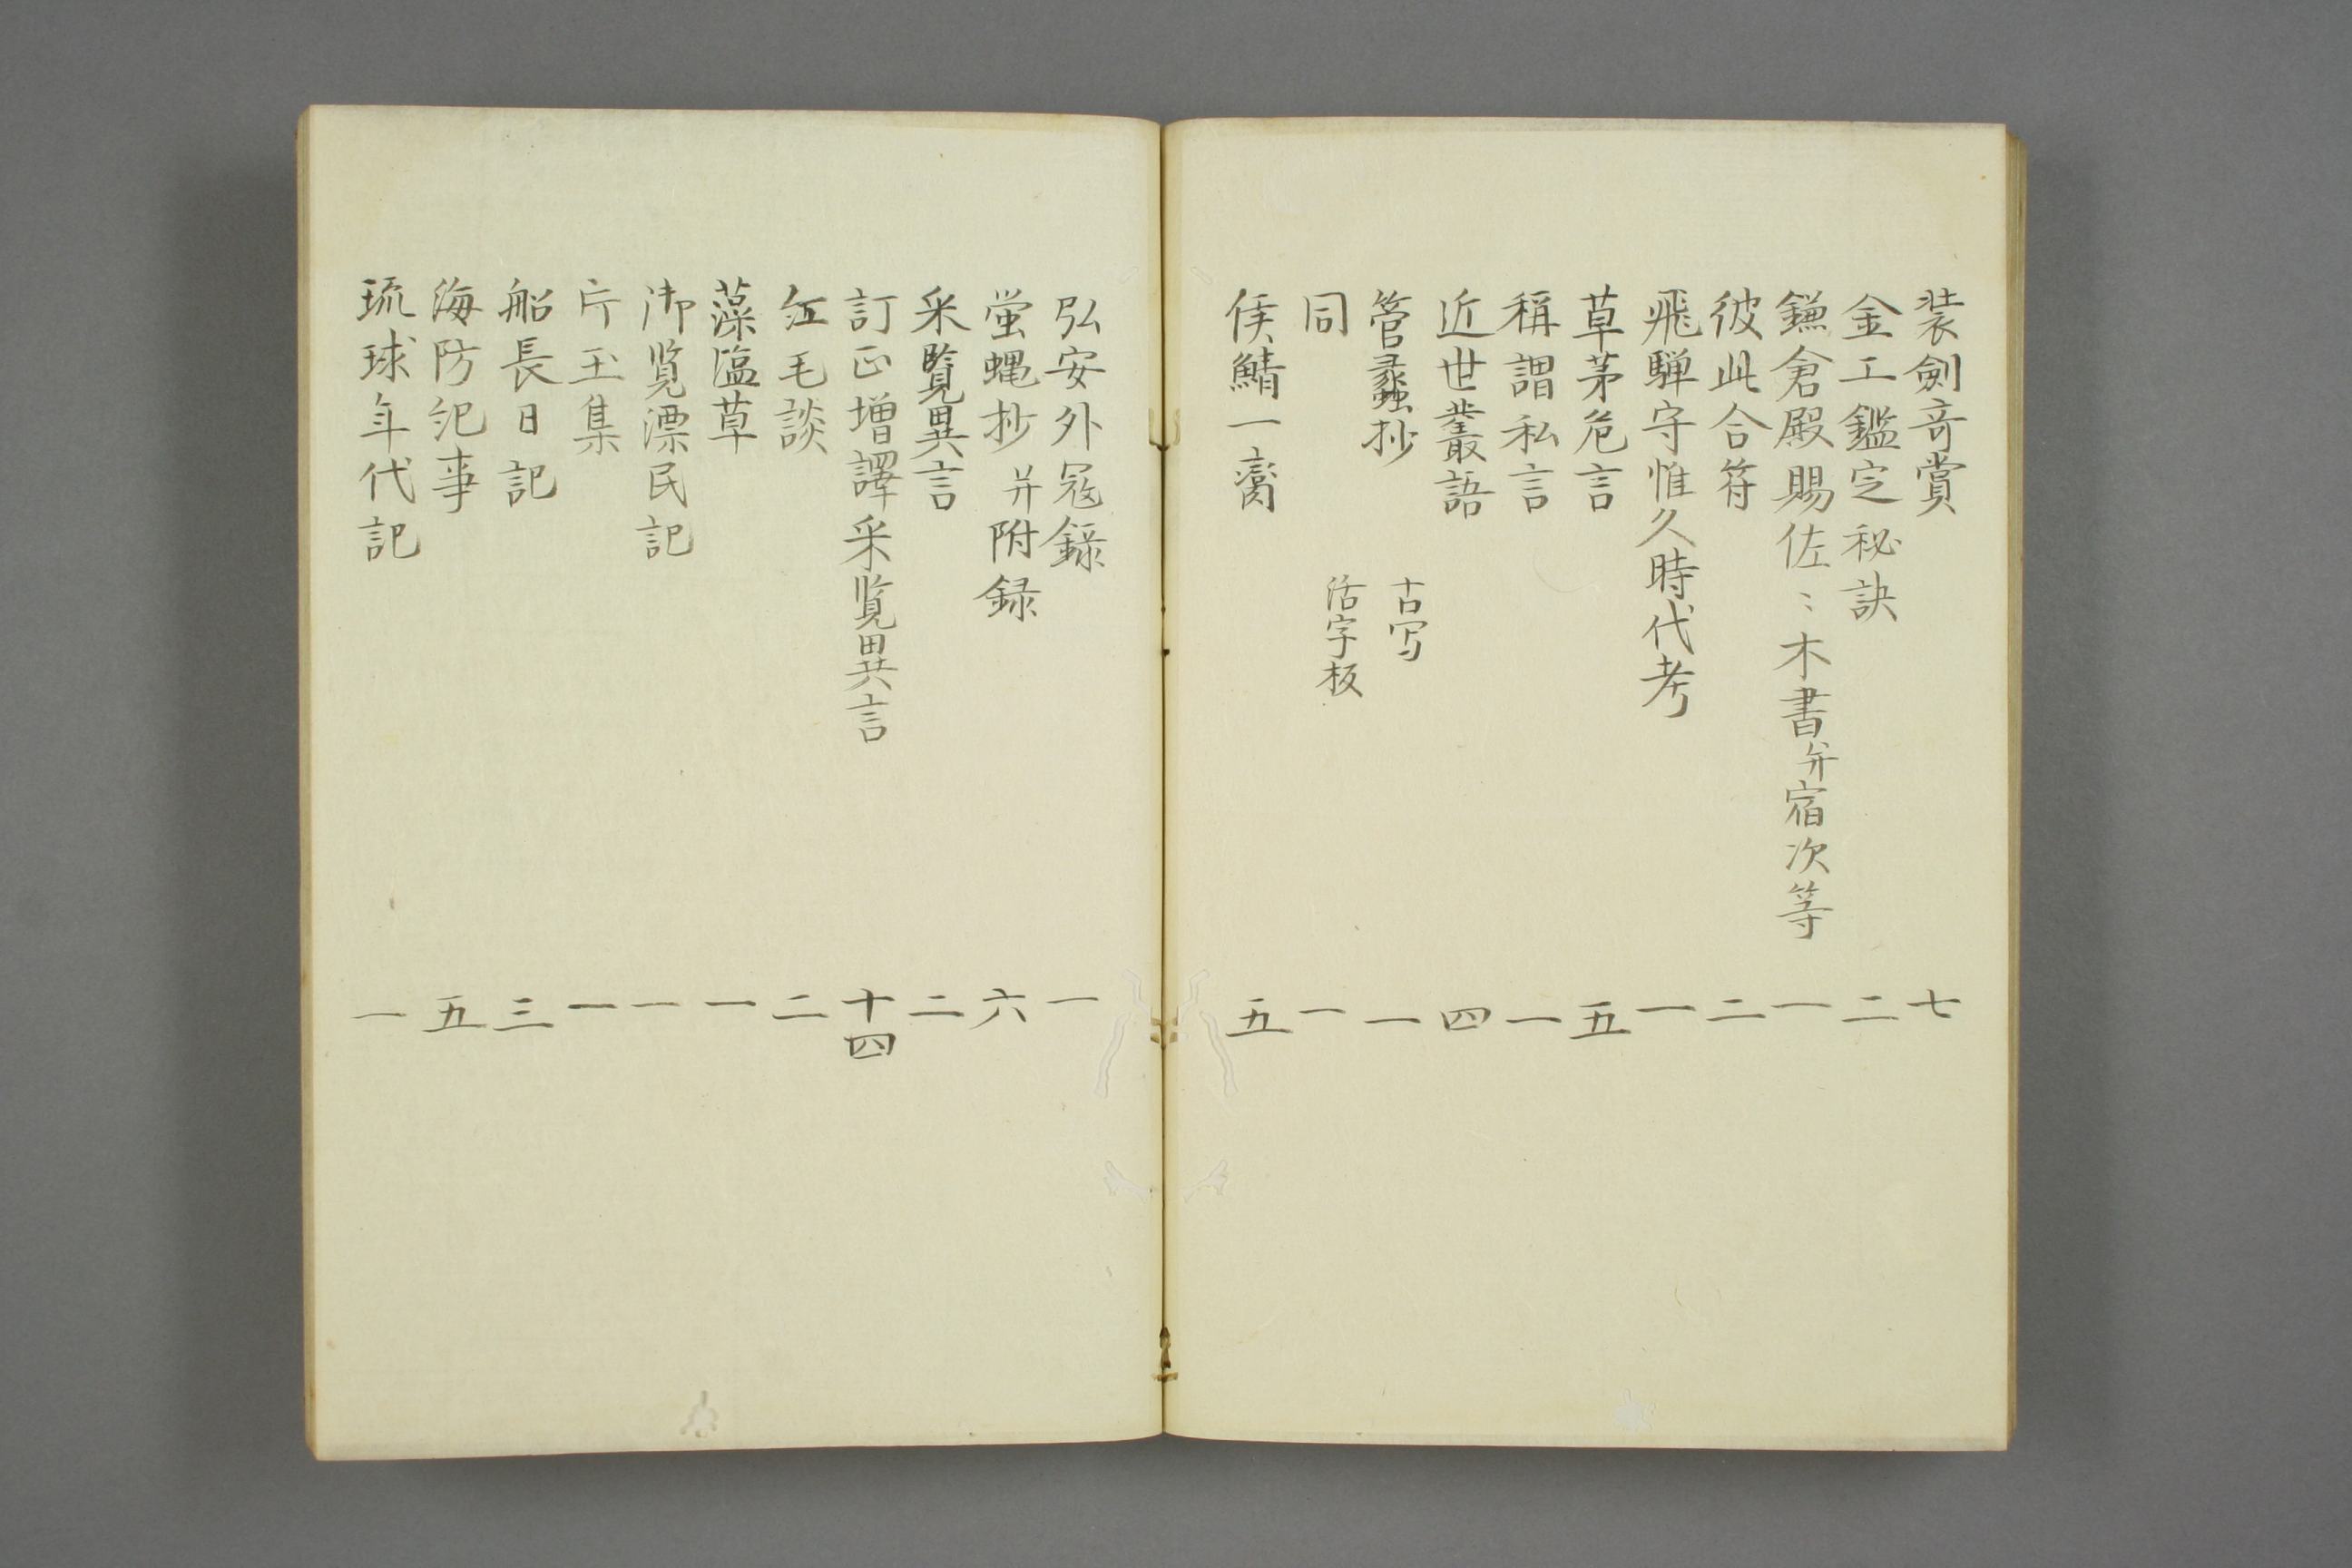 装劍奇賞 七
金工鑑定秘訣 二
鎌倉殿賜佐〻木書并宿次等 一
彼此合符 二
飛騨守惟久時代考 一
草茅危言 五
稱謂私言 一
近世叢語 四
管蠡抄 古写 一
同 活字板 一
侯鯖一臠 五
弘安外冦錄 一
蛍蝿抄 并附録 六
采覧異言 二
訂正増譯采覧異言 十四
紅毛談 二
藻塩草 一
御覧漂民記 一
片玉集 一
船長日記 三
海防紀事 五
琉球年代記 一